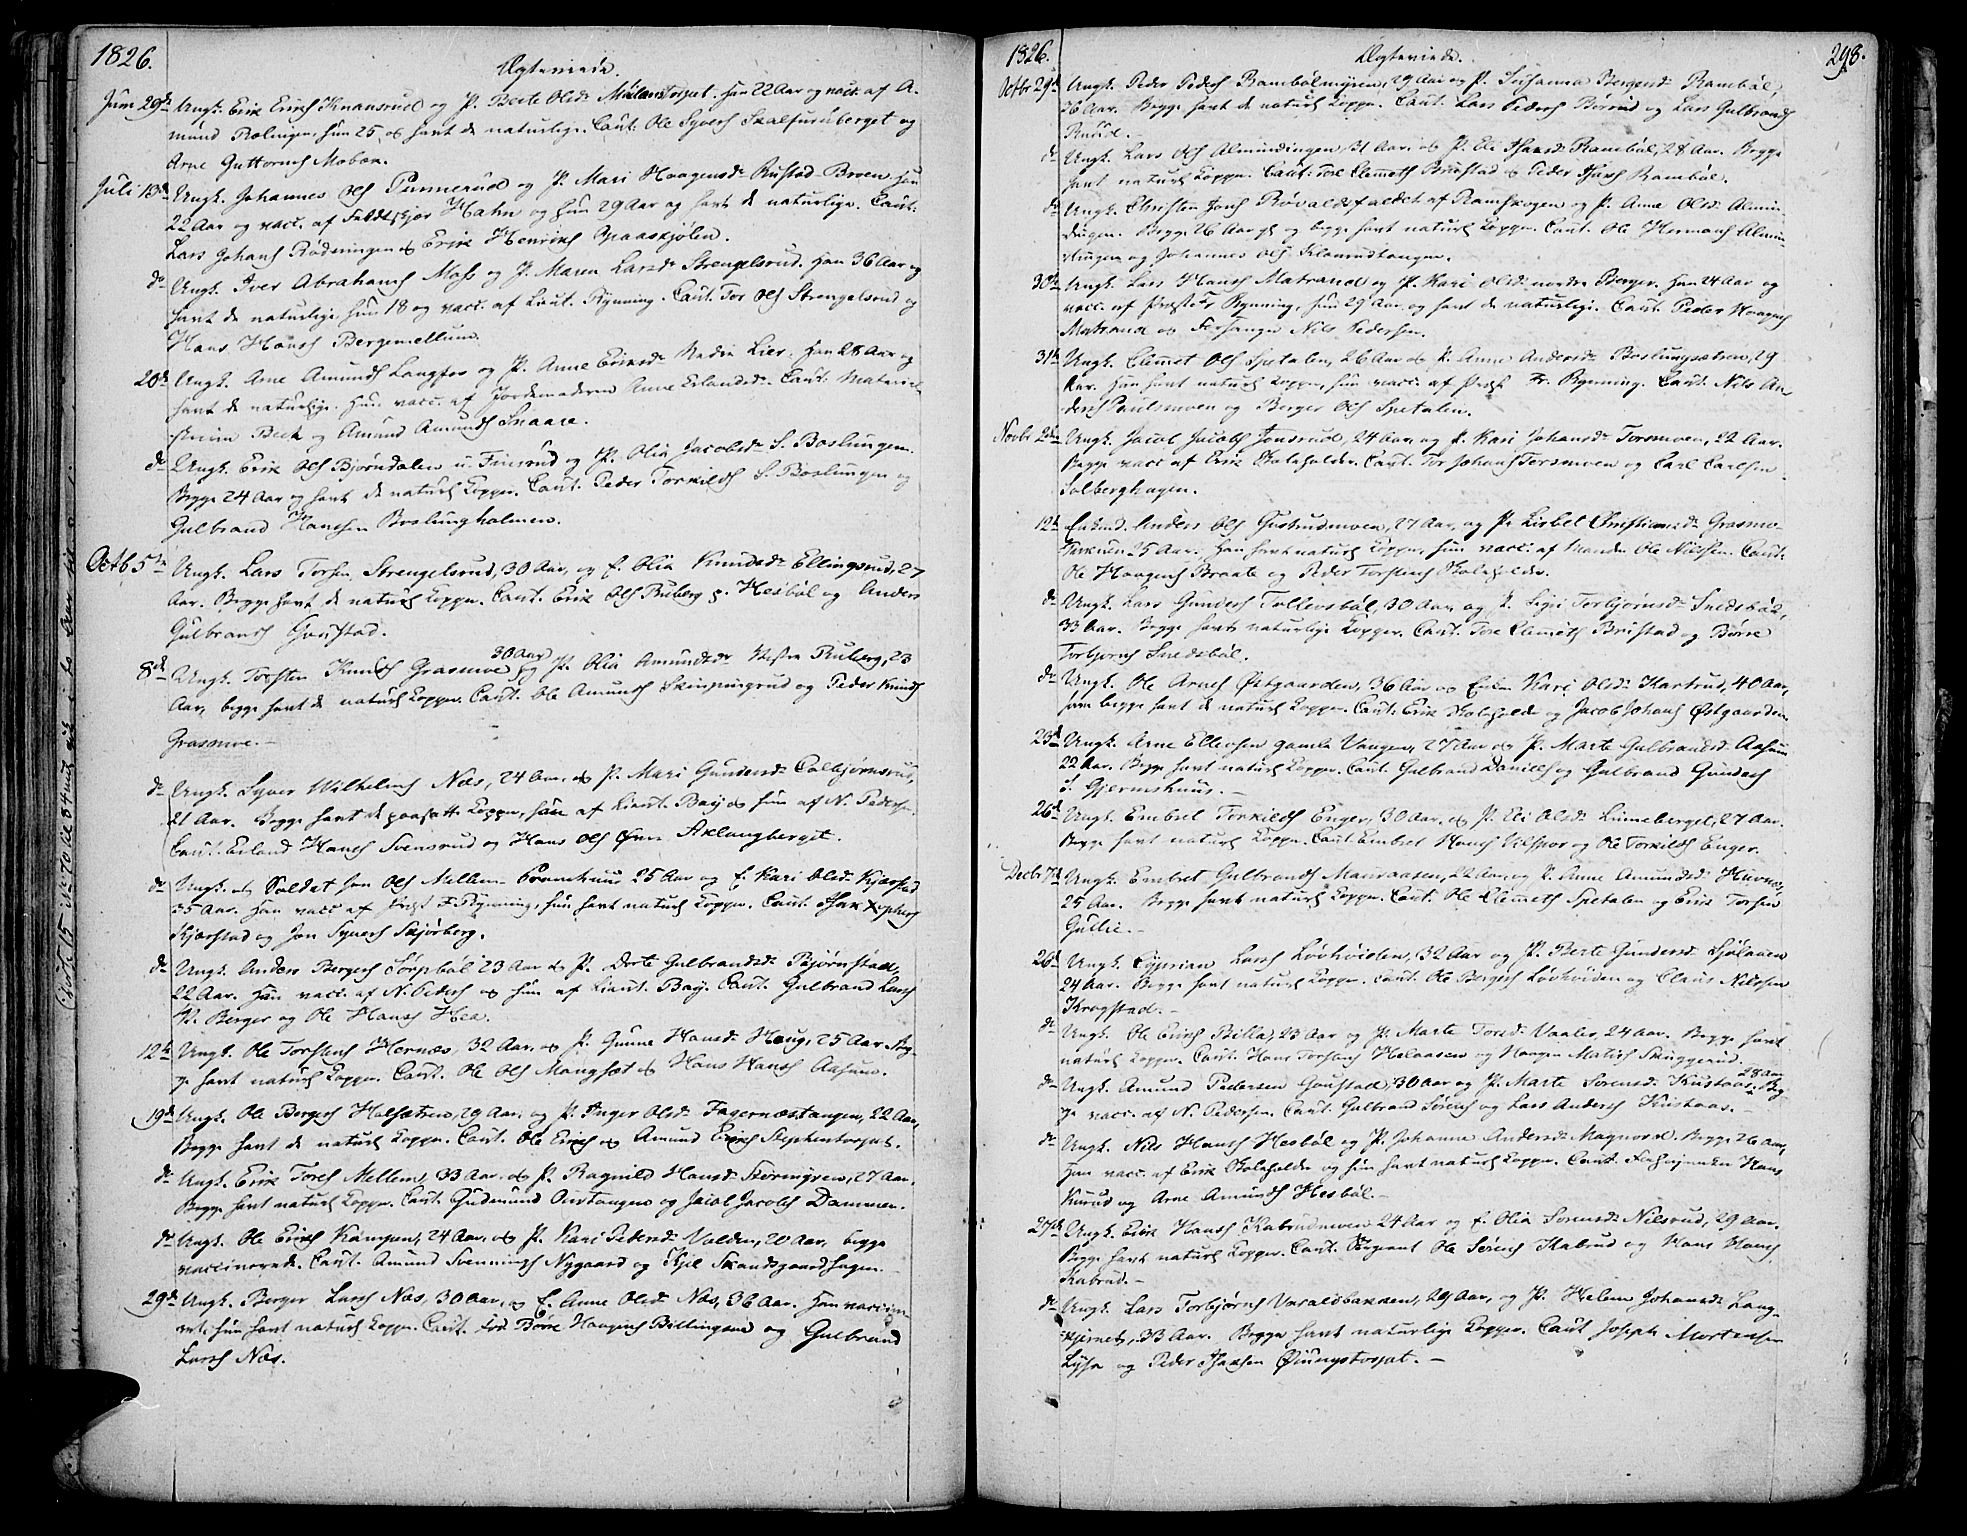 1826.
Ægteviede.
Juni 29de Ungk. Erik Erichs Knaasrud og P. Berte Olsdr Torpet. Han 22 Aar og vacc. af A-
mund Rælingen, hun 25 og havt de naturlige. Caut. Ole Syvers Skalfuruberget og
Arne Guttorms Moback.
Juli 13de Ungk. Johannes Ols Punnerud og P. Mari Haagensdr Rustad Broen Han
22 Aar og vacc. af Feldtskjær Hahn og hun 29 Aar og havt de naturlige. Caut.
Lars Johans Rødningen og Erik Henriks Spaaskjølen.
do Ungk. Iver Abrahams Moss og P. Maren Larsdr Strengelsrud. Han 36 Aar og
havt de naturlige hun 18 og vacc. af Lieut. Rynning. Caut. Tor Ols Strengelsrud og
Hans Hansch Bergemellum.
20de Ungk. Arne Amunds Langfos og P. Anne Eriksdr Nedre Lier. Han 28 Aar og
havt de naturlige. Hun vacc. af Jordemoderen Anne Erlandsdr. Caut. Materiel-
skriver Beck og Amund Amunds Snaare.
do Ungk. Erik Ols Bjørndalen u. Finsrud og P. Olia Jacobsdr S. Boslungen.
Begge 24 Aar og havt de naturl Kopper. Caut. Peder Torkilds S. Boslungen og
Gulbrand Hansen Boslungholmen.
Octb 5te Ungk. Lars Torsen Strengelsrud, 30 Aar, og E. Olia Knudsdr Ellingsrud, 27
Aar. Begge havt de naturl Kopper. Caut. Erik Ols Ruberg p. Hesbøl og Anders
Gulbrands Goustad.
8de Ungk. Torsten Knuds Grasmoe 30 Aar og P. Olia Amundsdr Vestre Ruberg, 23
Aar, begge havt de naturl Kopper. Caut. Ole Amunds Skinpungrud og Peder Knuds
Grasmoe.
do Ungk. Syver Wilhelms Næs, 24 Aar, og P. Mari Gundersdr Colbjørnsrud,
21 Aar. Begge havt de paasatte Kopper, han af Lieut. Bay og hun af N. Pedersen.
Caut. Erland Hansch Svensrud og Hans Ols Øvre Aklangberget.
do Ungk. og Soldat Jon Ols Mellem Promhuus 25 Aar og E. Kari Olsdr Kjærstad
35 Aar. Han vacc af Præst F. Rynning, hun havt naturl Kopper. Caut. Isak
Kjærstad og Jon Syvers Skjørberg.
do Ungk. Anders Bergers Sørpebøl 23 Aar og P. Dorte Gulbrandsdr Bjørnstad,
22 Aar. Han vacc. af N. Peders og hun af Lieut. Bay. Caut. Gulbrand Larss
N. Berger og Ole Hansch Hea.
12te Ungk. Ole Torstens Hernæs, 32 Aar og P. Gunne Hansdr Haug, 25 Aar Beg-
ge havt naturl Kopper. Caut. Ole Ols Mangsæt og Hans Hansch Aasum.
19de Ungk. Ole Bergers Holsætren, 29 Aar, og P. Inger Olsdr Fagernæstangen, 22 Aar,
Begge havt de naturl Kopper. Caut. Ole Erichs og Amund Erichs Stephenstorpet.
do Ungk. Erik Tores Mellem, 33 Aar og P. Ragnild Hansdr Størmyren, 27 Aar.
Begge havt naturl Kopper. Caut. Gudmund Overtangen og Jacob Jacobs Dammen.
do Ungk. Ole Erichs Kampen, 24 Aar, og P. Kari Pedersdr Volden, 20 Aar, begge
vaccinerede. Caut. Amund Svennings Nygaard og Kjel Skandsgaardhagen.
29de Ungk. Berger Larss Næs, 30 Aar, og E. Anne Olsdr Næs, 36 Aar. Han vaccin-
ret, hun havt naturl Kopper. Caut. Børre Haagens Billingen og Gulbrand
Larss Næs.
1826.
Ægteviede.
298.
Octbr 29de Ungk. Peder Peders Rambølmyren, 29 Aar og P. Susanna Bergersdr Rambøl,
36 Aar. Begge havt de naturl Kopper. Caut. Lars Peders Børrud og Lars Gulbrands
Kurud.
do Ungk. Lars Ols Almindingen 31 Aar og P. Eli Isaksdr Rambøl, 28 Aar. Begge
havt naturl Kopper. Caut. Tore Clemets Brustad og Peder Isaks Rambøl.
do Ungk. Christen Jons Røvaldsfaldet af Ramskogen og P. Anne Olsdr Almin-
dingen. Begge 26 Aar gl og begge havt naturl Kopper. Caut. Ole Hermans Almin-
dingen og Johannes Ols Klanudtangen.
30te Ungk. Lars Hansch Matrand og P. Kari Olsdr nordre Berger. Han 24 Aar og
vacc. af Præst Fr Rynning, hun 29 Aar og havt de naturlige. Caut. Peder Haagens
Matrand og Forsanger Nils Pedersen.
31te Ungk. Clemet Ols Spetalen, 26 Aar og P. Anne Andersdr Boslungsætren, 29
Aar. Han havt naturl Kopper, hun vacc. af Præst Fr. Rynning. Caut. Nils An-
ders Paulsmoen og Berger Ols Spetalen.
Novbr 2den Ungk. Jacob Jacobs Jonsrud, 24 Aar, og P. Kari Johansdr Torsmoen, 22 Aar.
Begge vacc af Erik Skoleholder. Caut. Tor Johans Torsmoen og Carl Carlsen
Solberghagen.
12te Enkmd. Anders Ols Gustrudmoen, 27 Aar, og P. Lisbet Christiansdr Grasmo-
25 Aar. Han havt naturl Kopper, hun vacc. af Ole Nilssen. Caut.
Ole Haagens Braate og Peder Torstens Skoleholder.
do Ungk. Lars Gunders Tollevsbøl, 30 Aar, og P. Sigri Torbjørnsdr Snedsbøl,
33 Aar. Begge havt naturlige Kopper. Caut. Tore Clemets Brustad og Børre
Torbjørns Snedsbøl.
do Ungk. Ole Arnes Østgaarden, 36 Aar og Enke Kari Olsdr Kartrud, 40 Aar,
som begge havt de naturl Kopper. Caut. Erik Skoleholder og Jacob Johans Østgaarden.
23de Ungk. Arne Ellevsen gamle Vangen, 27 Aar og P. Marte Gulbrandsdr Aasum
22 Aar. Begge havt naturl Kopper. Caut. Gulbrand Daniels og Gulbrand Gunders
S. Gjermshuus.
26de Ungk. Embret Torkilds Enger, 30 Aar, og P. Eli Olsdr Linneberget, 27 Aar.
Begge havt naturl Kopper. Caut. Embret Hansch Vilspor og Ole Torkilds Enger.
Decbr 7de Ungk. Embret Gulbrands Mauraasen, 22 Aar, og P. Anne Amundsdr Huvnæs,
25 Aar. Begge havt naturl Kopper. Caut. Ole Clemets Spetalen og Erik Torsen
Gullie.
26de Ungk. Cyprian Larss Løvhøiden, 32 Aar og P. Berte Gundersdr Sjølaaen
24 Aar. Begge havt naturl Kopper. Caut. Ole Bergers Løvhøiden og Claus Nilssen
Krogstad.
do Ungk. Ole Erichs Billa, 23 Aar og P. Marte Toresdr Vaaler, 24 Aar. Begge havt
naturl Kopper. Caut. Hans Torstens Helaasen og Haagen Matias Skuggerud.
do Ungk. Amund Pedersen Goustad, 30 Aar og P. Marte Sørensdr Kustaas 28 Aar. Beg-
ge vacc. af N. Pedersen. Caut. Gulbrand Sørens og Lars Anders Kustaas.
do Ungk. Nils Hansch Hesbøl og P. Johanne Andersdr Magnor. Begge 26 Aar,
Han vacc. af Erik Skoleholder og hun havt naturl Kopper. Caut. Forsanger Hans
Kurud og Arne Amunds Hesbøl.
27de Ungk. Erik Hansch Kabrudmoen 24 Aar og E. Olia Sørensdr Nilsrud, 29 Aar.
Begge havt naturl Kopper. Caut. Sergeant Ole Sørens Kabrud og Hans Hansch
Kabrud.
do Ungk. Lars Torbjørns Varaldsbakken, 29 Aar, og P. Helene Johansdr Lang-
tjernet, 33 Aar. Begge havt naturlige Kopper. Caut Joseph Mortensen
Lysa og Peder Isaksen Øiungstorpet.